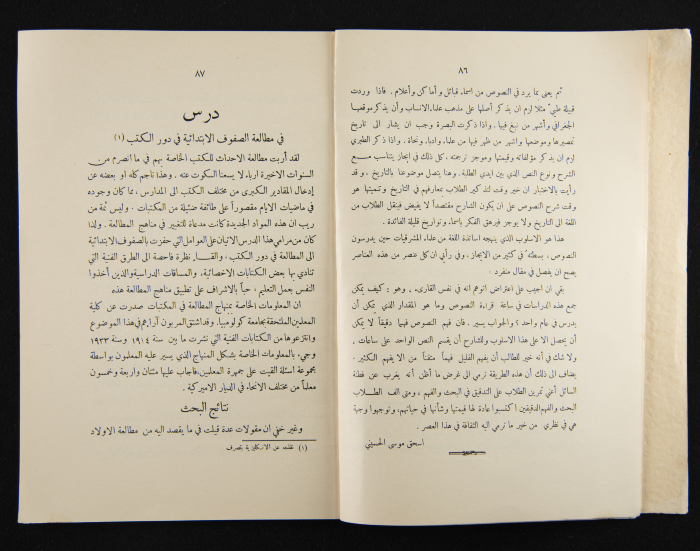 ٨٦
ثم يعنى بما يرد في النصوص من اسماء قبائل وأماكن وأعلام. فاذا وردت
قبيلة طيئ مثلا لزم ان يذكر أصلها على مذهب علماء الانساب وأن يذكر موقعها
الجغرافي وأشهر من نبغ فيها. واذا ذكرت البصرة وجب ان يشار الى تاريخ
تمصيرها وموضعها واشهر من ظهر فيها من علماء وادباء ونحاة. واذا ذكر الطبري
لزم ان يذكر مؤلفاته وقيمتها وموجز ترجمته. كل ذلك في ايجاز يتناسب مع
الشرح ونوع النص الذي بين ايدي الطلبة. وهنا يتصل موضوعنا بالتاريخ، وقد
رأيت بالاختبار ان خير وقت لتذكير الطلاب بمعارفهم في التاريخ وتنميتها هو
وقت شرح النصوص على ان يكون الشارح مقتصداً لا يفيض فينقل الطلاب من
اللغة الى التاريخ ولا يوجز فيرهق الفكر باسماء وتواريخ قليلة الفائدة.
هذا هو الاسلوب الذي ينهجه اساتذة اللغة من علماء المشرقيات حين يدرسون
النصوص، بسطته في كثير من الايجاز، وفي رأيي ان كل عنصر من هذه العناصر
يصح ان يفصل في مقال منفرد.
بقي ان اجيب على اعتراض اتوهم انه في نفس القارىء، وهو: كيف يمكن
جمع هذه الدراسات في ساعة قراءة النصوص وما هو المقدار الذي يمكن أن
يدرس في عام واحد؟ والجواب يسير. فان فهم النصوص فهماً دقيقاً لا يمكن
أن يحصل الا على هذا الاسلوب وللشارح أن يقسم النص الواحد على ساعات.
ولا شك في أنه خير للطالب أن يفهم القليل فهماً متقناً من الا يفهم الكثير.
يضاف الى ذلك أن هذه الطريقة ترمي الى غرض ما أظن أنه يغرب عن فطنة
السائل أعني تمرين الطلاب على التدقيق في البحث والفهم، ومتى الف الطلاب
البحث والفهم الدقيقين اكتسبوا عادة لها قيمتها وشأنها في حياتهم، وتوجيها وجهة
هي في نظري من خير ما ترمي اليه الثقافة في هذا العصر.
اسحق موسى الحسيني
٨٧
درس
في مطالعة الصفوف الابتدائية في دور الكتب (١)
لقد أربت مطالعة الاحداث للكتب الخاصة بهم في ما انصرم من
السنوات الاخيرة ارباء لا يسعنا السكوت عنه. وهذا ناجم كله او بعضه عن
إدخال المقادير الكبرى من مختلف الكتب الى المدارس، مما كان وجوده
في ماضيات الايام مقصوراً على طائفة ضئيلة من المكتبات. وليس ثمة من
ريب ان هذه المواد الجديدة كانت مدعاة للتغيير في مناهج المطالعة. ولذا
كان من مرامي هذا الدرس الاتيان على العوامل التي حفزت بالصفوف الابتدائية
الى المطالعة في دور الكتب، والقاء نظرة فاحصة الى الطرق الفنية التي
تنادي بها بعض الكتابات الاخصائية، والمساقات الدراسية والذين أخذوا
النفس بعمل التعليم، حباً بالاشراف على تطبيق مناهج المطالعة هذه
ان المعلومات الخاصة بمنهاج المطالعة في المكتبات صدرت عن كلية
المعلمين الملتحقة بجامعة كولومبيا. وقد اشتق المربون آراءهم في هذا الموضوع
وانتزعوها من الكتابات الفنية التي نشرت ما بين سنة ١٩١٤ وسنة ١٩٣٣
وجيء بالمعلومات الخاصة بشكل المنهاج الذي يسير عليه المعلمون بواسطة
مجموعة اسئلة القيت على جمهرة المعلمين، فاجاب عليها مئتان واربعة وخمسون
معلماً من مختلف الانحاء في الديار الاميركية.
نتائج البحث
وغير خفي ان مقولات عدة قيلت في ما يقصد اليه من مطالعة الاولاد
(١) نقلت عن الانكليزية بتصرف